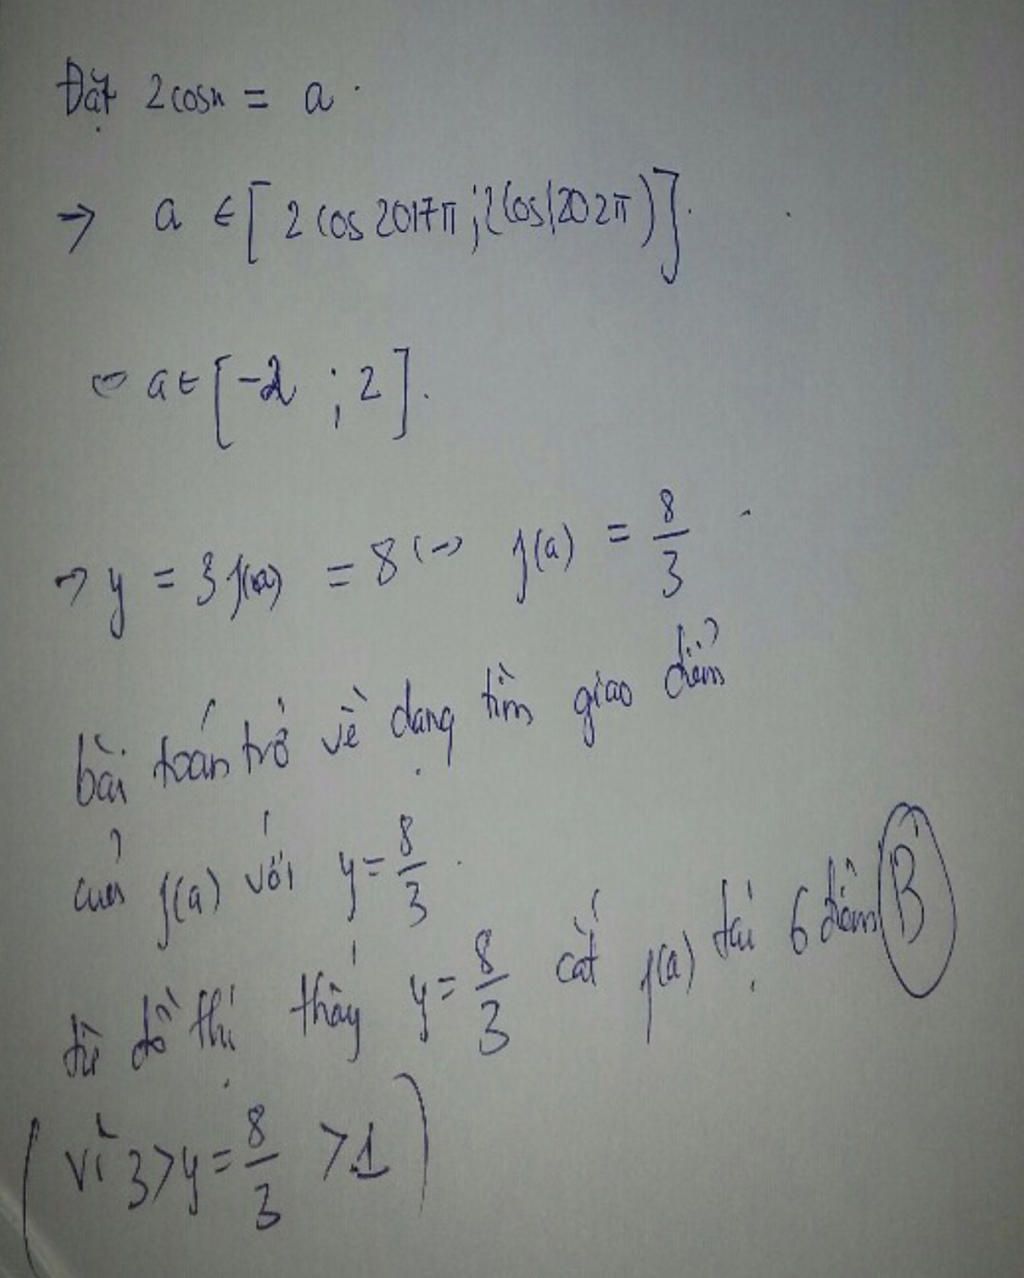 Đặt 2cosx = a.
→ a ∈ [2 cos 2017π ; 2cos(202π)].
⇔ a ∈ [-2 ; 2].
→ y = 3 f(a) = 8 ⇔ f(a) = 8/3.
bài toán trở về dạng tìm giao điểm
của f(a) với y = 8/3.
từ đồ thị thấy y = 8/3 cắt f(a) tại 6 điểm B
(vì 3 > y = 8/3 > 1)